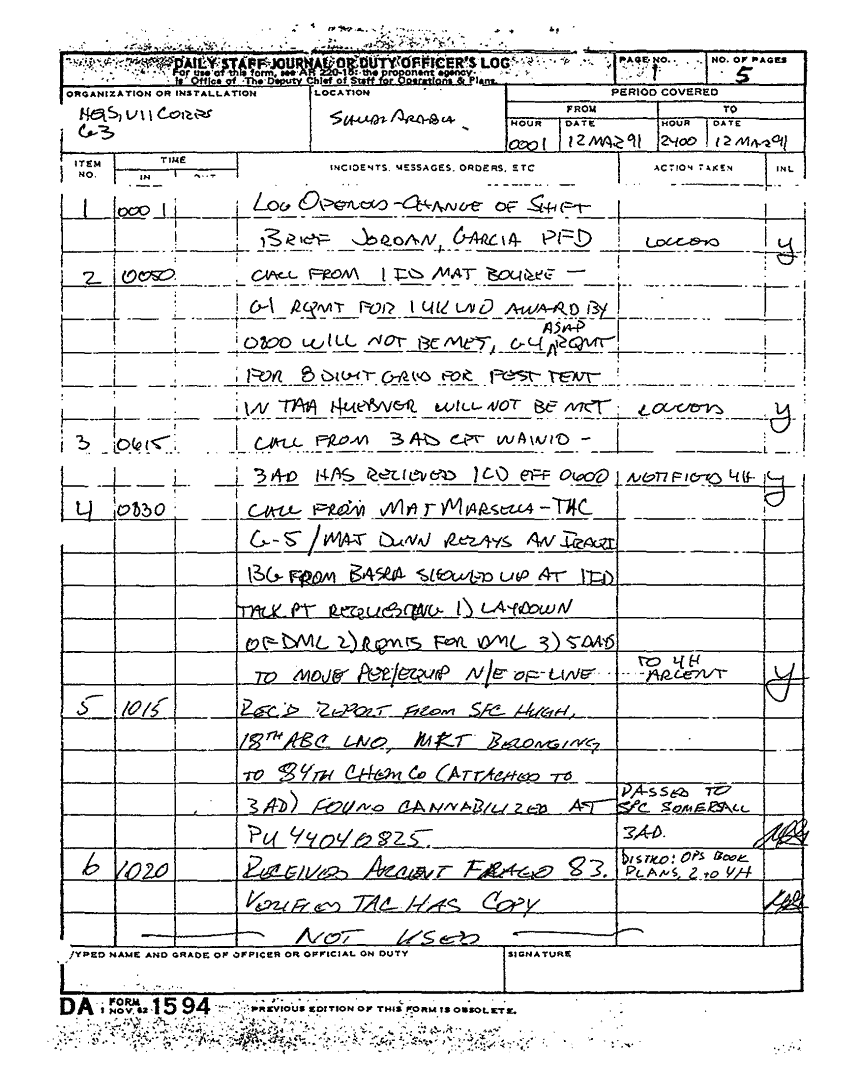 DAILY STAFF JOURNAL OR DUTY OFFICER'S LOG
For use of this form, see AR 220-15; the proponent agency
is Office of The Deputy Chief of Staff for Operations & Plans.
PAGE NO.
1
NO. OF PAGES
5
ORGANIZATION OR INSTALLATION
HQS, VII CORPS
G-3
LOCATION
SAUDI ARABIA
PERIOD COVERED
FROM
TO
HOUR
DATE
HOUR
DATE
0001
12 MAR 91
2400
12 MAR 91
ITEM NO.
TIME
IN
OUT
INCIDENTS, MESSAGES, ORDERS, ETC
ACTION TAKEN
INL
1 0001 LOG OPENED - CHANGE OF SHIFT
BRIEF JORDAN, GARCIA PFD LOGGED
2 0050 CALL FROM 1 ID MAJ BOURKE -
G1 RQMT FOR 14K LNO AWARD BY
0800 WILL NOT BE MET, G4 ASAP RQMT
FOR 8 DIGIT GRID FOR FEST TENT
IN TAA HUEBNER WILL NOT BE MET LOGGED
3 0615 CALL FROM 3AD CPT WAINIO -
3AD HAS RELIEVED 1CD EFF 0600 NOTIFIED 4H
4 0830 CALL FROM MAJ MARSELLA - TAC
G-5 / MAJ DUNN RELAYS AN IRAQI
BG FROM BASRA SHOWED UP AT 1ID
TALK PT REQUESTING 1) LAYDOWN
OF DML 2) RQMTS FOR DML 3) 5 DAYS
TO MOVE PER/EQUIP N/E OF LINE TO 4H ARCENT
5 1015 REC'D REPORT FROM SFC HUGH,
18TH ABC LNO, MKT BELONGING
TO 84TH CHEM CO (ATTACHED TO
3AD) FOUND CANNABILIZED AT PASSED TO SFC SOMERSALL
PU 44040825. 3AD.
6 1020 RECEIVED ARCENT FRAGO 83. DISTRO: OPS BOOK PLANS, 2 TO 4H
VERIFIED TAC HAS COPY
NOT USED
TYPED NAME AND GRADE OF OFFICER OR OFFICIAL ON DUTY
SIGNATURE
DA FORM 1 NOV. 62 1594
PREVIOUS EDITION OF THIS FORM IS OBSOLETE.